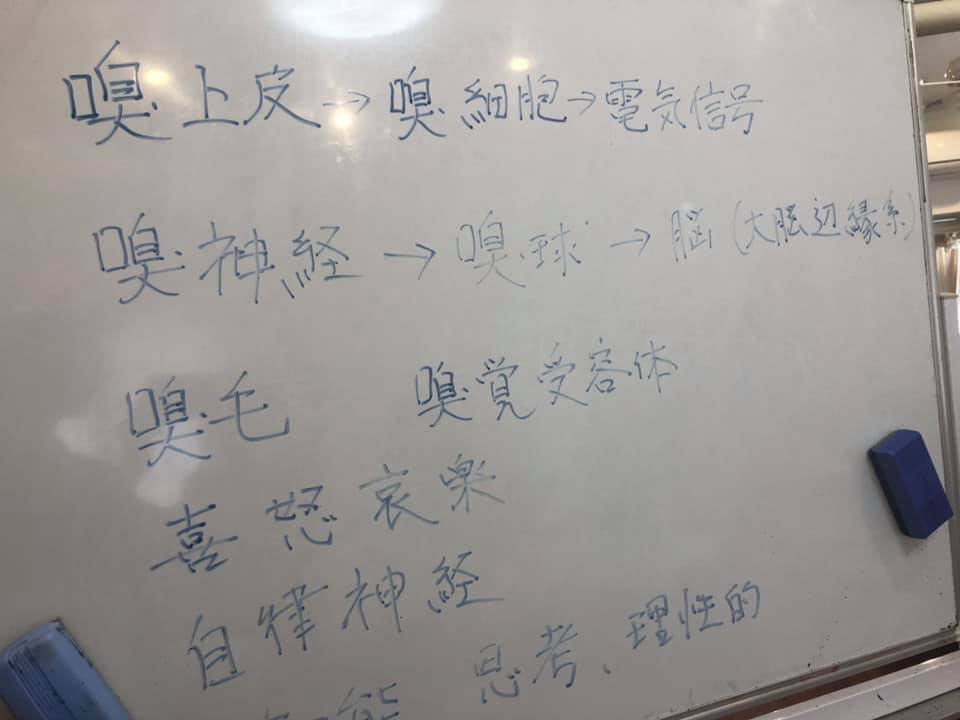 嗅上皮→嗅細胞→電気信号
嗅神経→嗅球→脳(大脳辺縁系)
嗅毛 嗅覚受容体
喜怒哀楽
自律神経
能 思考、理性的